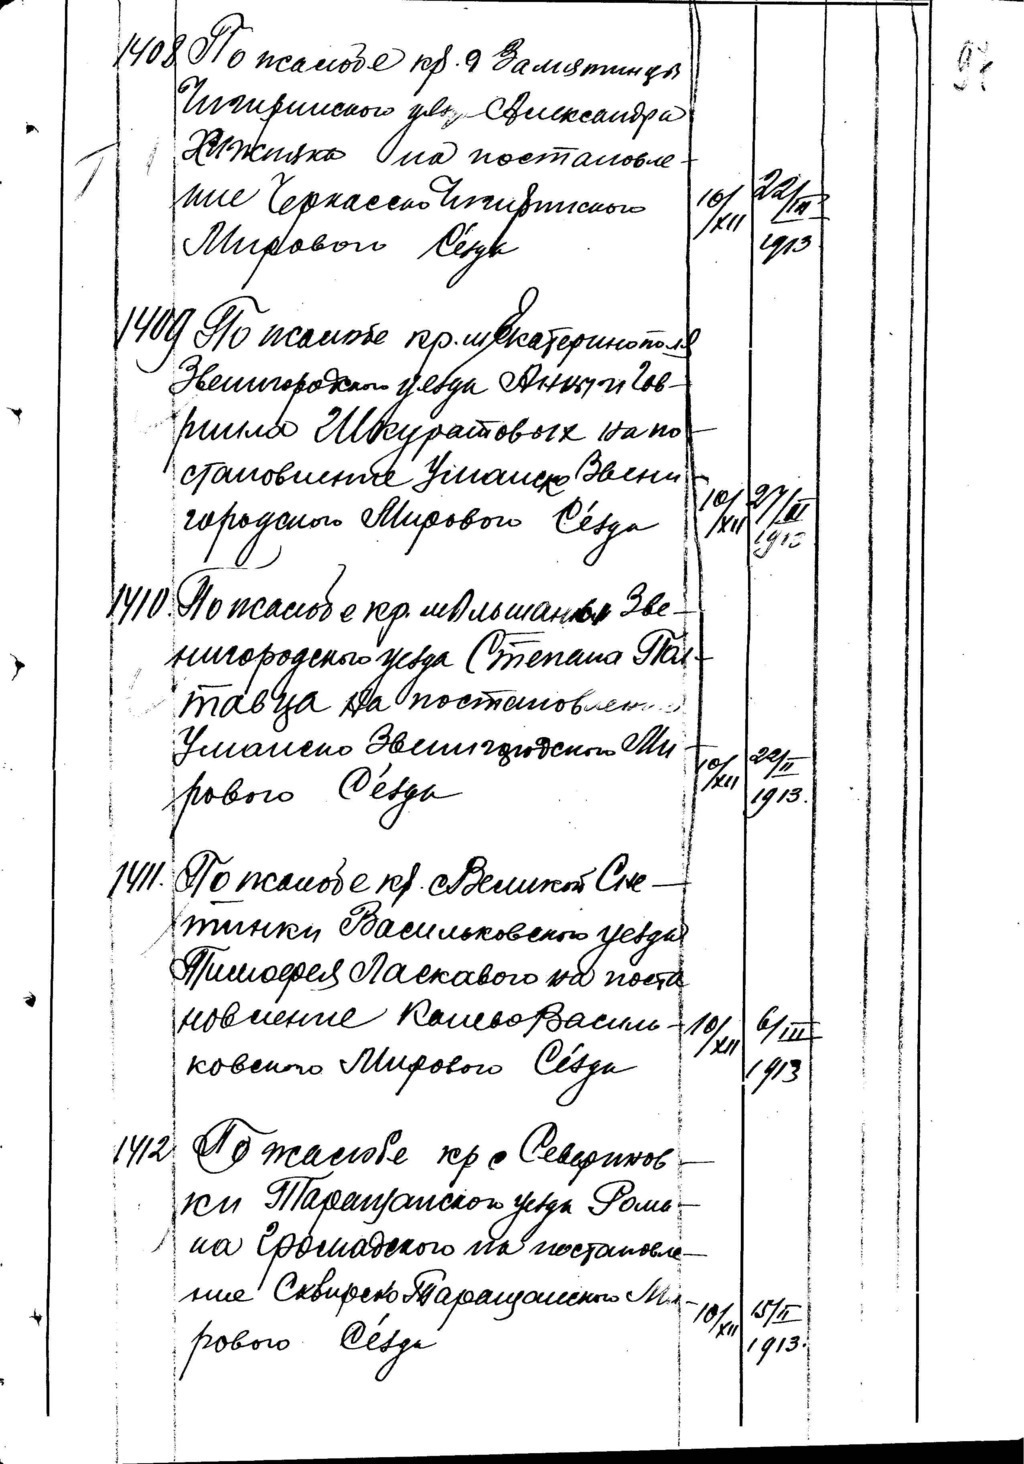 1408 По жалобе кр. с Замятинцы
Чигиринского уез. Александра
на постановле-
ние Черкасско Чигиринского
Мирового Сезда
10/XII 22/II 1913
1409 По жалобе кр. м Екатеринополя
Звенигородского уезда Анны и Гав-
риила Шкуратовых на по-
становление Уманско Звени-
городского Мирового Сезда
10/XII 27/II 1913
1410. По жалобе кр. м Ольшаны Зве-
нигородского уезда Степана Пол-
тавца на постановление
Уманско Звенигородского Ми-
рового Сезда
10/XII 22/II 1913.
1411. По жалобе кр. с Великой Сне-
тинки Васильковского уезда
Тимофея Ласкавого на поста
новление Киево Василь-
ковского Мирового Сезда
10/XII 6/III 1913
1412 По жалобе кр с Севериновки
ки Таращанского уезда Рома-
на Громадского на постановле-
ние Сквирско Таращанского Ми-
рового Сезда
10/XII 15/II 1913.